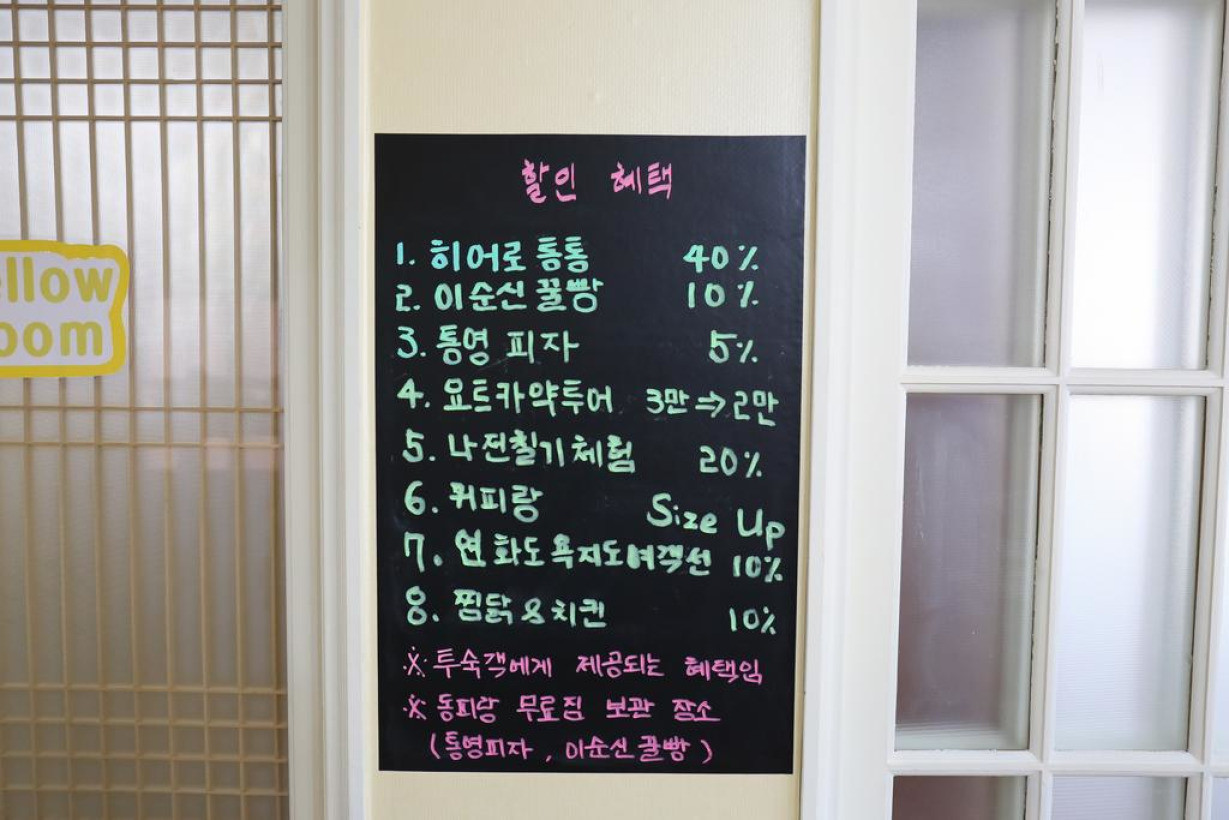 ellow
oom
할인 혜택
1. 히어로 통통 40%
2. 이순신 꿀빵 10%
3. 통영 피자 5%
4. 요트카약투어 3만 ⇒ 2만
5. 나전칠기체험 20%
6. 커피랑 Size Up
7. 연화도욕지도여객선 10%
8. 찜닭 & 치킨 10%
※ 투숙객에게 제공되는 혜택임
※ 동피랑 무료짐 보관 장소
(통영피자, 이순신꿀빵)